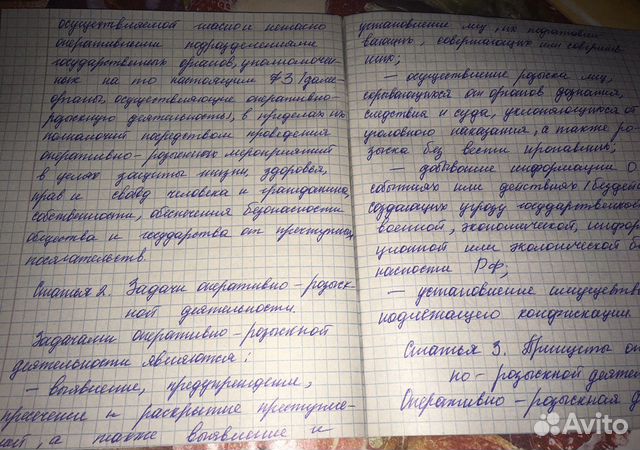 осуществляемой гласно и негласно
оперативными подразделениями
государственных органов, уполномочен-
ных на то настоящим ФЗ (далее-
органы, осуществляющие оперативно-
розыскную деятельность), в пределах их
полномочий посредством проведения
оперативно-розыскных мероприятий
в целях защиты жизни, здоровья,
прав и свобод человека и гражданина,
собственности, обеспечения безопасности
общества и государства от преступных
посягательств.
Статья 2. Задачи оперативно-розыск-
ной деятельности.
Задачами оперативно-розыскной
деятельности являются:
- выявление, предупреждение,
пресечение и раскрытие преступле-
ний, а также выявление и
установление лиц, их подготавли-
вающих, совершающих или соверши-
ших;
- осуществление розыска лиц,
скрывающихся от органов дознания,
следствия и суда, уклоняющихся от
уголовного наказания, а также ро-
зыска без вести пропавших;
- добывание информации о
событиях или действиях (бездей
создающих угрозу государственной
военной, экономической, информ
ционной или экологической бе
пасности РФ;
- установление имущества
подлежащего конфискации.
Статья 3. Принципы оп
но-розыскной деятел
Оперативно-розыскная д
Avito